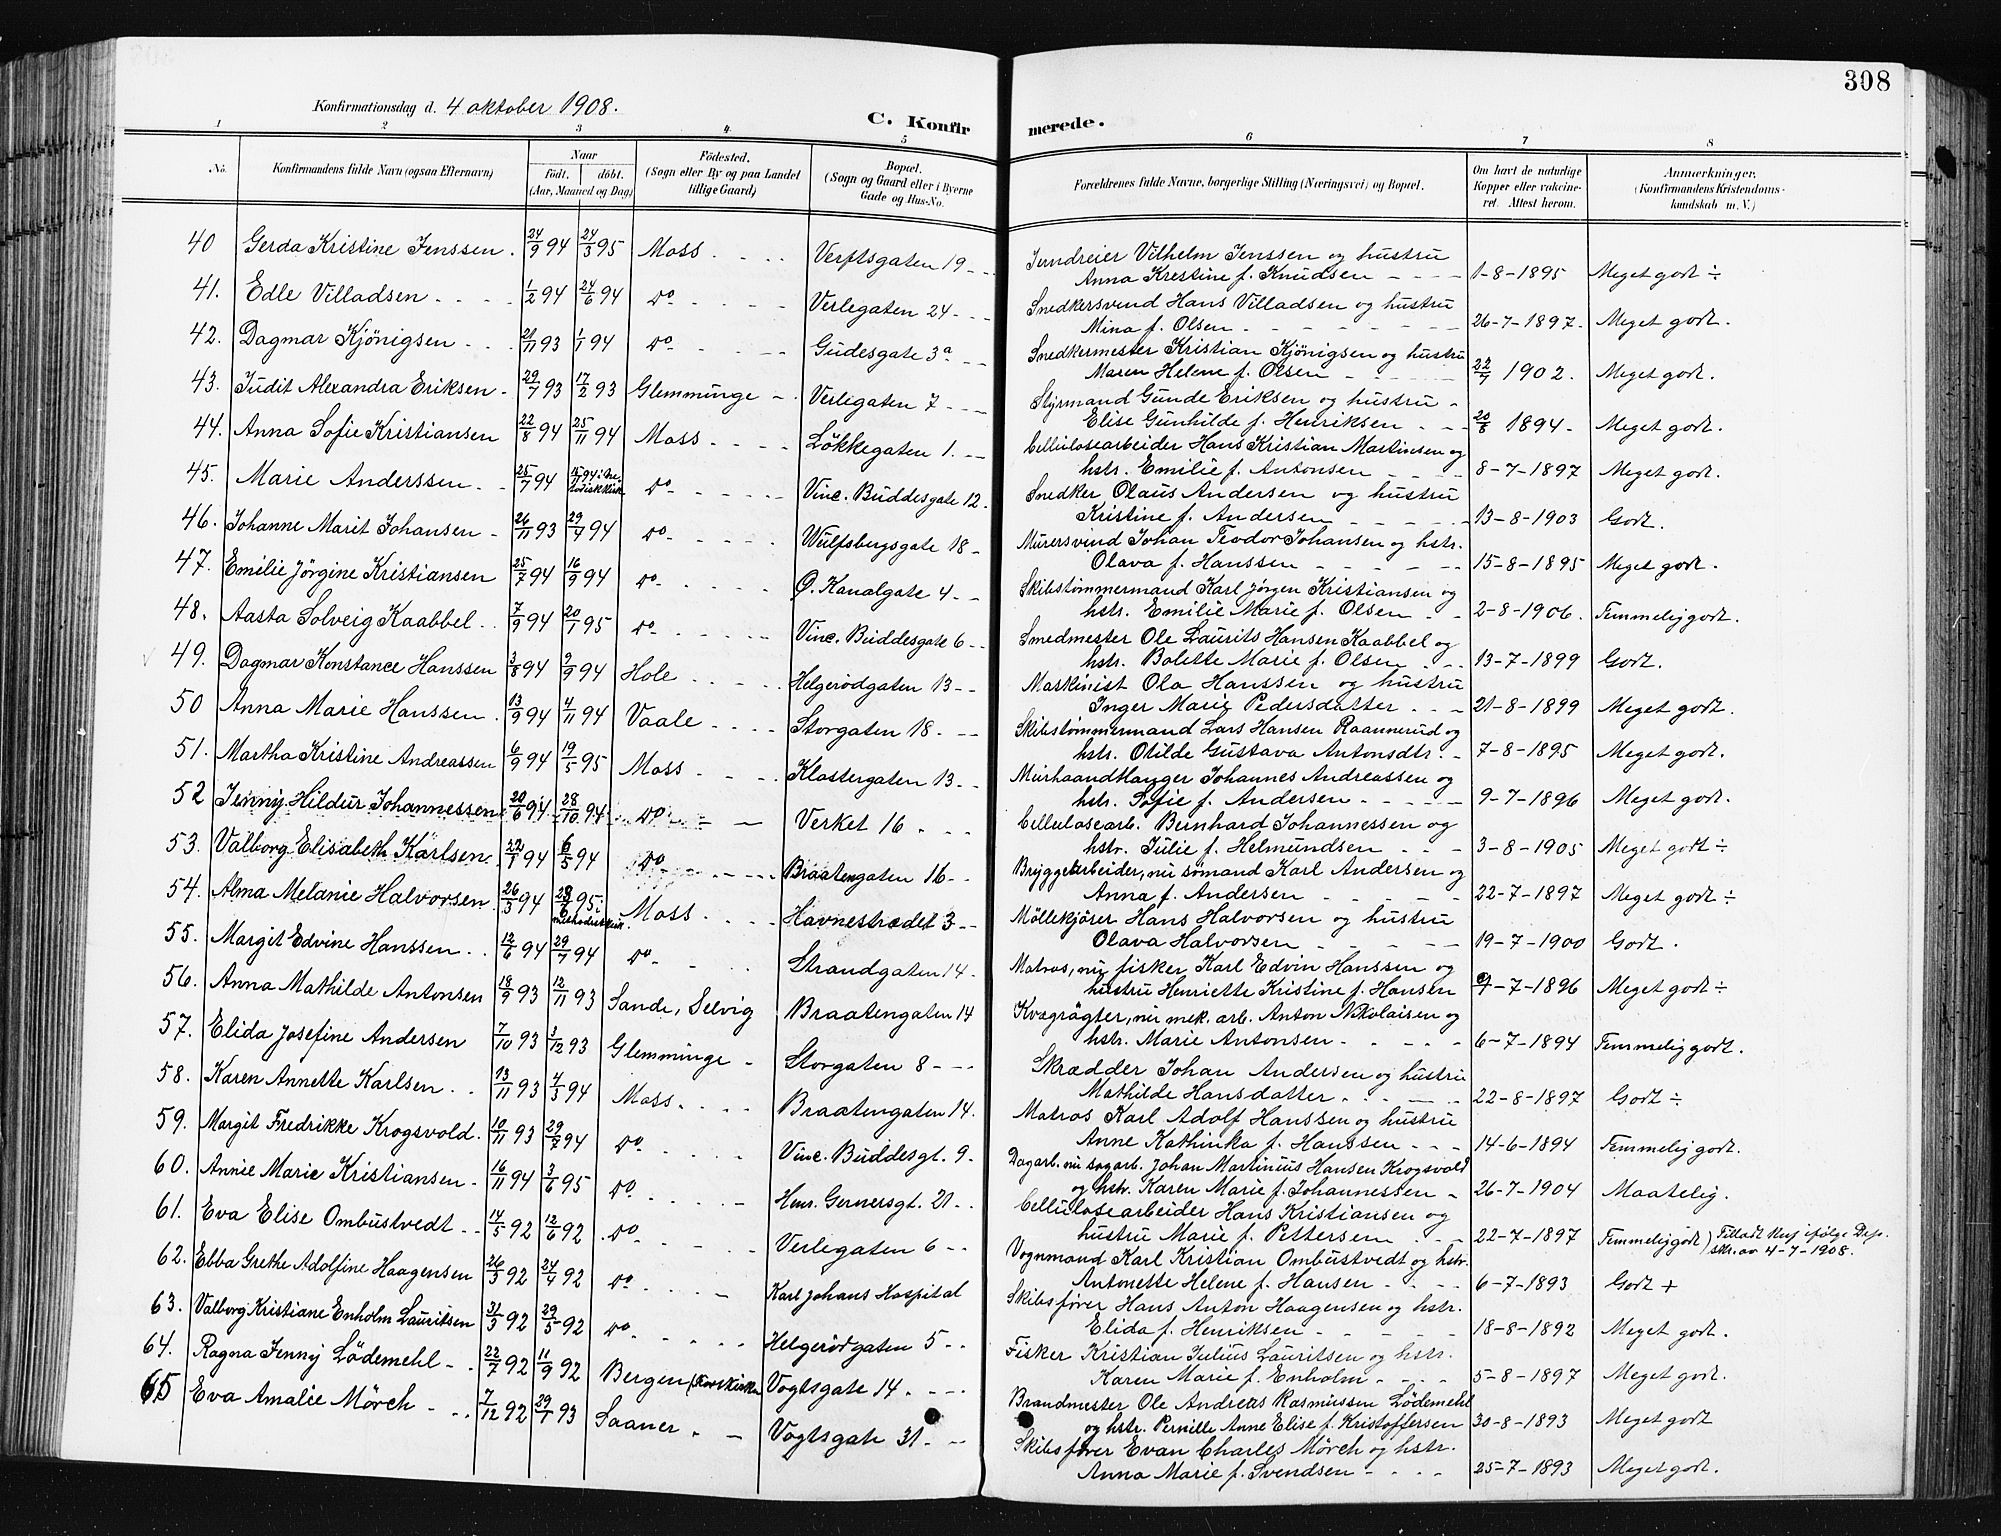 308
Konfirmationsdag d. 4 oktober 1908.
C. Konfirmerede.
1 2 3 4 5 6 7 8
No.
Konfirmandens fulde Navn (ogsaa Efternavn)
Naar
født. døbt.
(Aar, Maaned og Dag)
Fødested.
(Sogn eller By og paa Landet
tillige Gaard)
Bopæl.
(Sogn og Gaard eller i Byerne
Gade og Hus-No.
Forældrenes fulde Navne, borgerlige Stilling (Næringsvei) og Bopæl.
Om havt de naturlige
Kopper eller vakcine-
ret. Attest herom.
Anmærkninger.
(Konfirmandens Kristendoms-
kundskab m. V.)
40 Gerda Kristine Jenssen. 24/9 94 24/3 95 Moss Verftsgaten 19 Jerndreier Vilhelm Jenssen og hustru
Anna Krestine f. Knudsen 1-8-1895 Meget godt ÷
41. Edle Villadsen 1/2 94 24/6 94 Do Verlegaten 24 Snedkersvend Hans Villadsen og hustru
Mina f. Olsen 26-7-1897. Meget godt.
42. Dagmar Kjönigsen 21/11 93 1/1 94 Do Gudesgate 3a Snedkermester Kristian Kjönigsen og hustru
Maren Helene f. Olsen 22/7 1902. Meget godt.
43. Judit Alexandra Eriksen 29/7 93 17/2 93 Glemminge Verlegaten 7 Styrmand Gunde Eriksen og hustru
Elise Gunhilde f. Henriksen 20/8 1894 Meget godt.
44. Anna Sofie Kristiansen 22/8 94 25/11 94 Moss Løkkegaten 1. Cellulosearbeider Hans Kristian Martinsen og
hstr. Emilie f. Antonsen 8-7-1897 Meget godt.
45. Marie Anderssen 25/7 94 Do Vinc. Buddesgate 12. Snedker Olaus Andersen og hustru
Kristine f. Andersen 13-8-1903 Godt.
46. Johanne Marit Johansen 26/11 93 29/4 94 Do Wulfsbergsgate 18 Murersvind Johan Teodor Johansen og hstr.
Olava f. Hanssen 15-8-1895 Meget godt.
47. Emilie Jörgine Kristiansen 25/7 94 16/9 94 Do Ø. Kanalgate 4 Skibstømmermand Karl Jörgen Kristiansen og
hstr. Emilie Marie f. Olsen 2-8-1906. Temmelig godt.
48. Aasta Solveig Kaabbel 7/9 94 20/1 95 Do Vinc. Buddesgate 6 Smedmester Ole Laurits Hansen Kaabbel og
hstr. Bolette Marie f. Olsen 13-7-1899 Godt.
49. Dagmar Konstance Hanssen 3/8 94 9/9 94 Hole Helgerödgaten 13 Maskinist Ola Hanssen og hustru
Inger Marie Pedersdatter 21-8-1899 Meget godt.
50 Anna Marie Hanssen 13/9 94 4/11 94 Vaale Storgaten 18 Skibstømmermand Lars Hansen Raannerud og
hstr. Otilde Gustava Antonsdtr. 7-8-1895 Meget godt.
51. Martha Kristine Andreassen 6/9 94 19/5 95 Moss Klostergaten 13 Murhaandtlanger Johannes Andreassen og
hstr. Sofie f. Andersen 9-7-1896 Meget godt.
52 Jenny Hildur Johannessen 20/6 94 28/10 94 Do Verket 16 Cellulosearb. Bernhard Johannessen og
hstr. Julie f. Helmundsen 3-8-1905 Meget godt ÷
53. Valborg Elisabeth Karlsen 22/1 94 6/5 94 Do Braatengaten 16 Bryggearbeider, nu sömand Karl Andersen og
Anna f. Andersen 22-7-1897 Meget godt ÷
54. Alma Melanie Halvorsen 26/3 94 28/6 95. Moss Havnestrædet 3 Möllekjörer Hans Halvorsen og hustru
Olava Halvorsen 19-7-1900 Godt.
55. Margit Edvine Hanssen 12/6 94 29/7 94 Do Strandgaten 14 Matros, nu fisker Karl Edvin Hanssen og
hustru Henriette Kristine f. Hansen 9-7-1896 Meget godt ÷
56. Anna Mathilde Antonsen 18/9 93 12/11 93 Sande, Selvig Braatengaten 14 Kvægrögter, nu mek. arb. Anton Nikolaisen og
hstr. Marie Antonsen 6-7-1894 Temmelig godt.
57. Elida Josefine Andersen 7/10 93 3/12 93 Glemminge Storgaten 8 Skrædder Johan Andersen og hustru
Mathilde Hansdatter 22-8-1897 Godt ÷
58. Karen Annette Karlsen 13/11 93 4/3 94 Moss Braatengaten 14. Matros Karl Adolf Hanssen og hustru
Anne Kathinka f. Hanssen 14-6-1894 Temmelig godt.
59. Margit Fredrikke Krogsvold 10/11 93 29/7 94 Do Vinc. Buddesgt. 9 Dagarb. nu sagarb. Johan Martinius Hansen Krogsvold
og hstr. Karen Marie f. Johannessen 26-7-1904 Maatelig.
60. Annie Marie Kristiansen 16/11 94 3/6 95 Do Henr. Gernersgt. 21 Cellulosearbeider Hans Kristiansen og
hustru Marie f. Pettersen 22-7-1897 Temmelig godt) Tilladt ifølge Dep.
skr. av 4-7-1908.
61. Eva Elise Ombustvedt 14/5 92 12/6 92 Do Verlegaten 6 Vognmand Karl Kristian Ombustvedt og hstr.
Antonette Helene f. Hansen 6-7-1893 Godt +
62. Ebba Grethe Adolfine Haagensen 26/3 92 24/4 92 Do Karl Johans Hospital Skibsfører Hans Anton Haagensen og hstr.
Elida f. Henriksen 18-8-1892 Meget godt.
63. Valborg Kristiane Enholm Lauritsen 31/3 92 29/5 92 Do Helgerödgaten 5 Fisker Kristian Julius Lauritsen og hstr.
Karen Marie f. Enholm 5-8-1897 Meget godt.
64. Ragna Jenny Lödemehl 22/7 92 11/9 92 Bergen (Korskirke Vogtsgate 14 Brandmester Ole Andreas Rasmussen Lödemehl
og hstr. Pernille Anne Elise f. Kristoffersen 30-8-1893 Meget godt
65 Eva Amalie Mörch 7/12 92 29/1 93 Saaner Vogtsgate 31 Skibsfører Evan Charles Mörch og hstr.
Anna Marie f. Svendsen 25-7-1893 Meget godt.